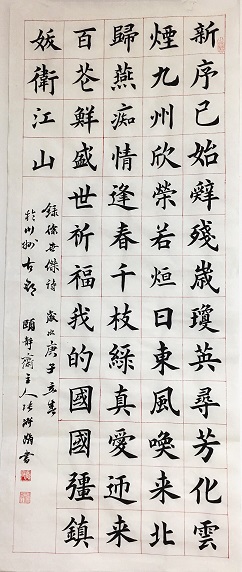 新序已始辤殘嵗瓊英尋芳化雲
煙九州欣榮若烜日東風喚来北
歸燕痴情逢春千枝綠真愛迊来
百芲鮮盛世祈福我的國國彊鎮
妖衛江山
錄徐世傑詩 歲次庚子春
於川古 頤静齋主人張書